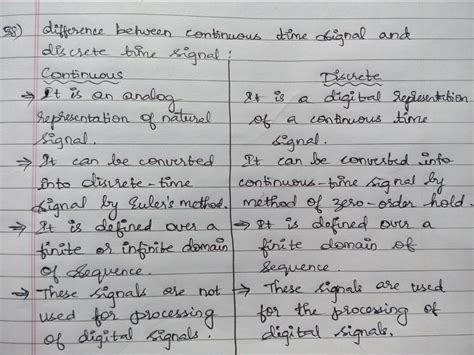 difference between continuous time signal and
discrete time signal:
Continuous
→ It is an analog
representation of natural
signal.
→ It can be converted
into discrete-time
signal by Euler's method.
→ It is defined over a
finite or infinite domain
of sequence.
→ These signals are not
used for processing
of digital signals.
Discrete
It is a digital representation
of a continuous time
signal.
It can be converted into
continuous-time signal by
method of zero-order hold.
→ It is defined over a
finite domain of
sequence.
→ These signals are used
for the processing of
digital signals.